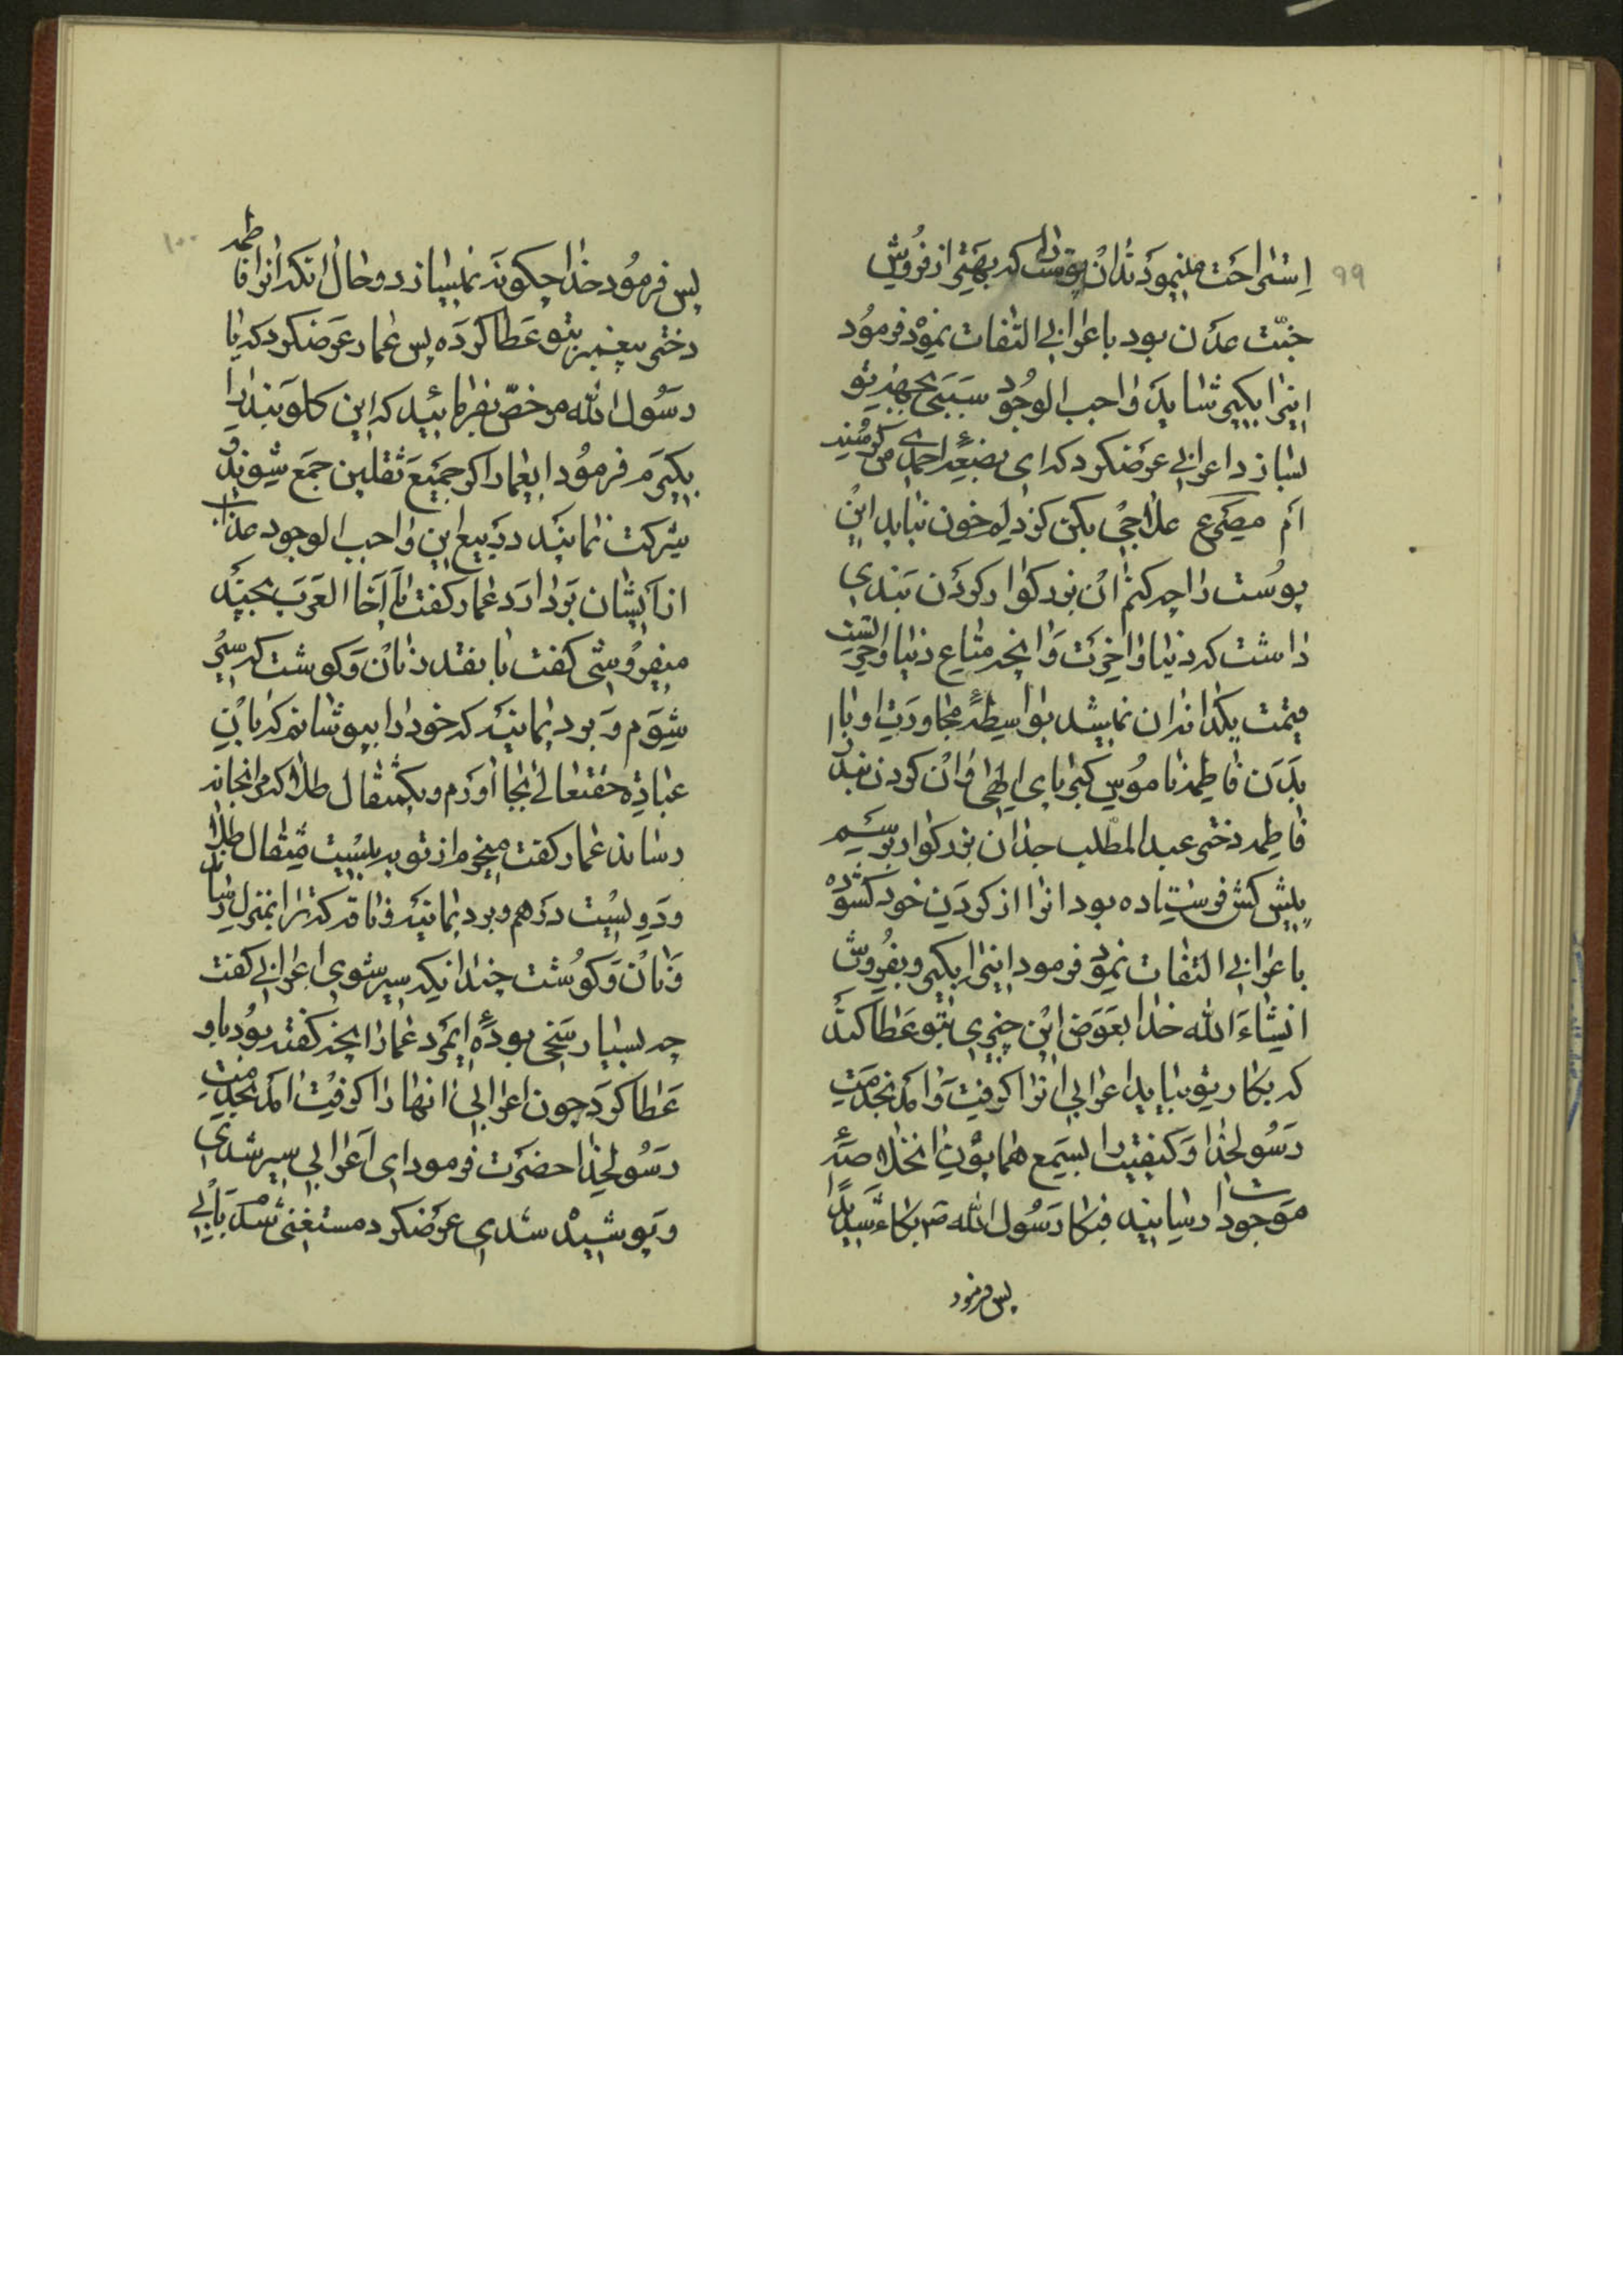 ۹۹
استراحت مینمودند آن پوست را که بهتر از فروش
جنّت عدن بود باعرابی التفات نموده فرمود
اینرا بگیر شاید واجب الوجود سببی بجهة تو
بسازد اعرابی عرضکرد که ای بضعهٔ احمدی من گرسنه
ام مصرع علاجی بکن کز دلم خون نیاید این
پوست را چه کنم آن بزرگوار گردن بندی
داشت که دنیا و آخرت و آنچه متاع دنیا و آخرتست
قیمت یکدانه آن نمیشد بواسطهٔ مجاورت او با
بدن فاطمه ناموس کبریای الهی و آن گردن بند را
فاطمه دختر عبد المطلب جدان بزرگوار برسم
پیش کش فرستاده بود آنرا از گردن خود گشوده
باعرابی التفات نمود فرمود اینرا بگیر و بفروش
انشاءَ الله خدا بعوض این چیزی بتو عطا کند
که بکار تو بیاید اعرابی آنرا گرفت و آمد بخدمت
رسولخدا و کیفیت را بسمع همایون آن خلاصهٔ
موجودات رسانید فبکا رسول الله ص بکاءً شدیدًا
پس فرمود
۱۰۰
پس فرمود خدا چگونه نمیسازد و حال آنکه آنرا فاطمه
دختر پیغمبر بتو عطا کرده پس عمار عرضکرد که یا
رسول الله مرخص بفرمائید که این گلوبند را
بگیرم فرمود ایعمار اگر جمیع ثقلین جمع شوند و
شرکت نمایند در بیع این واجب الوجود عذاب
از ایشان بردارد عمار گفت یا اخا العرب بچند
میفروشی گفت بانقدر نان و گوشت که سیر
شوم و برد یمانیه که خود را بپوشانم که باین
عبادة حقتعالی بجا آورم و یکمثقال طلا که مرا بخانه
رساند عمار گفت میخرم از تو به بیست مثقال طلا
و دویست درهم و برد یمانیه و ناقه که ترا بمنزل رساند
و نان و گوشت چندانیکه سیر شوی اعرابی گفت
چه بسیار سخی بودهٔ ایمرد عمار آنچه گفته بود باو
عطا کرد چون اعرابی آنها را گرفت آمد بخدمت
رسولخدا حضرت فرمود ای اعرابی سیر شدی
و پوشیده شدی عرضکرد مستغنی شدم بابی